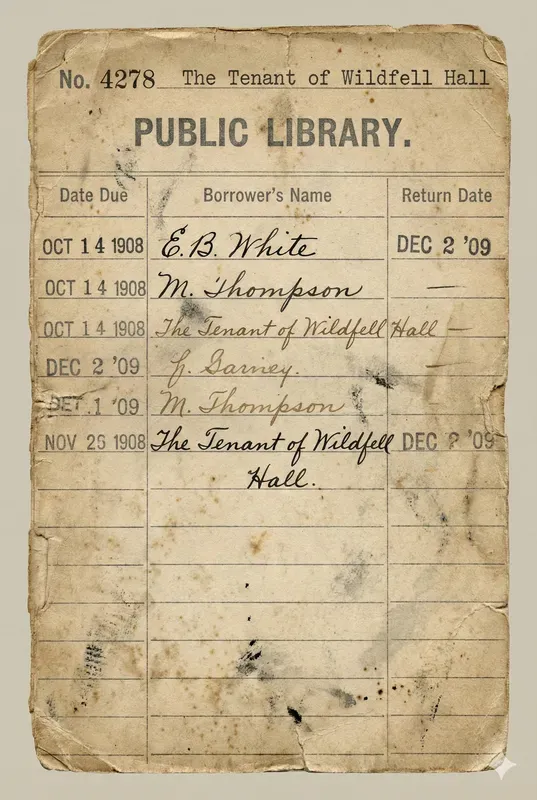 No. 4278 The Tenant of Wildfell Hall
PUBLIC LIBRARY.
Date Due Borrower's Name Return Date
OCT 14 1908 E. B. White DEC 2 '09
OCT 14 1908 M. Thompson —
OCT 14 1908 The Tenant of Wildfell Hall —
DEC 2 '09
.1 '09 M. Thompson
NOV 25 1908 The Tenant of Wildfell DEC '09
Hall.